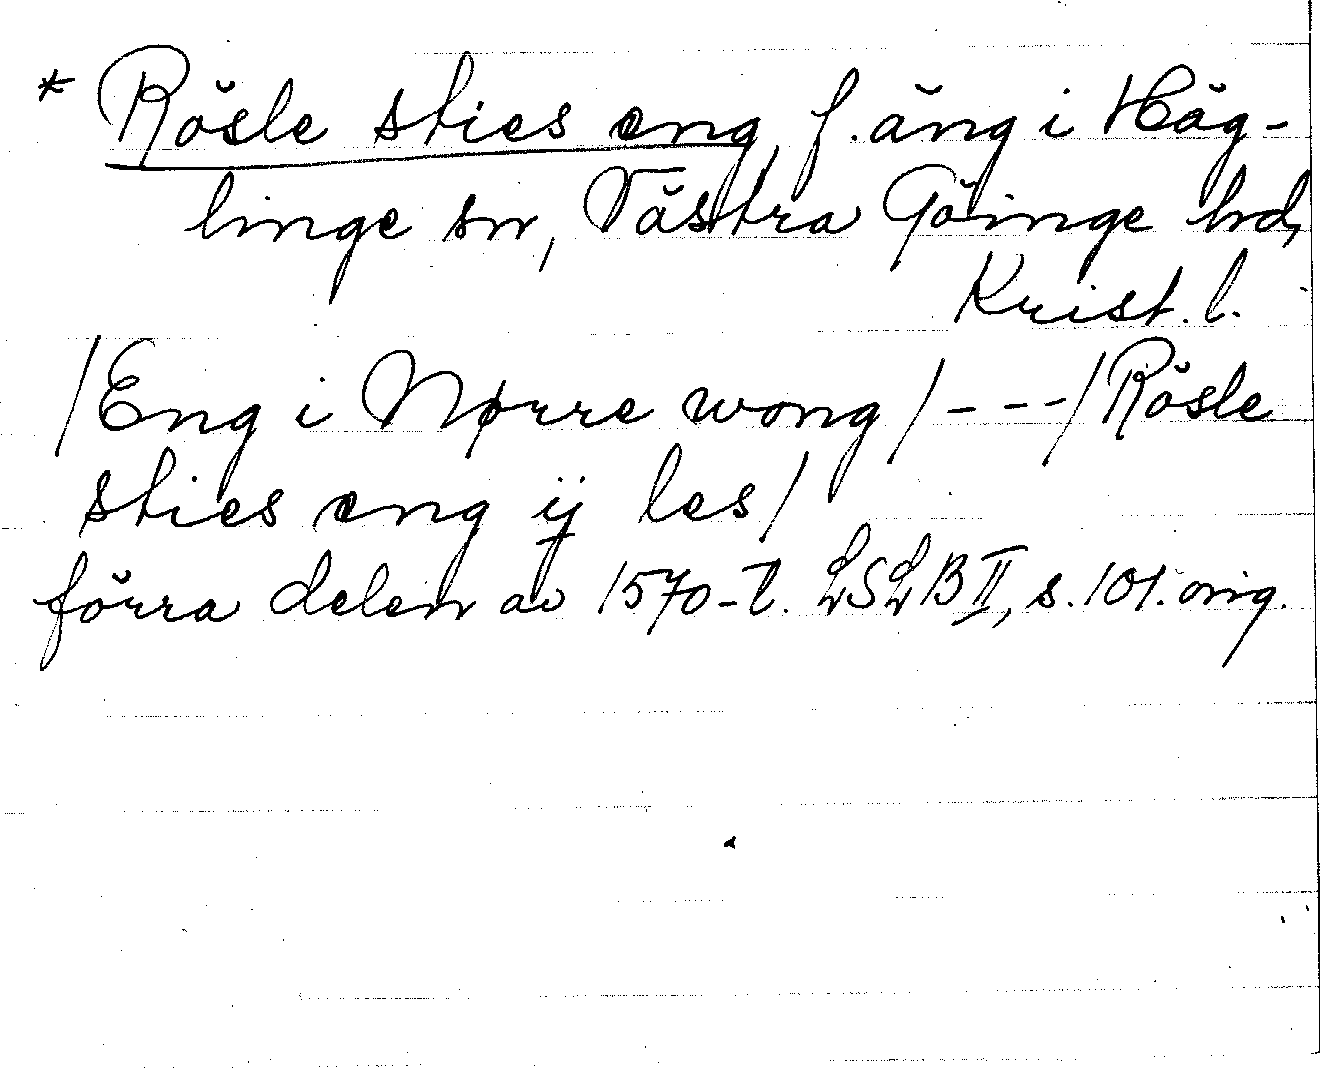 * Rösle sties eng, f. äng i Häg-
linge sn, Västra Göinge hd,
Krist. l.
/Eng i Nørre wong/ - - - /Rösle
sties eng ij les/
förra delen av 1570-t. LSLB II, s. 101. orig.